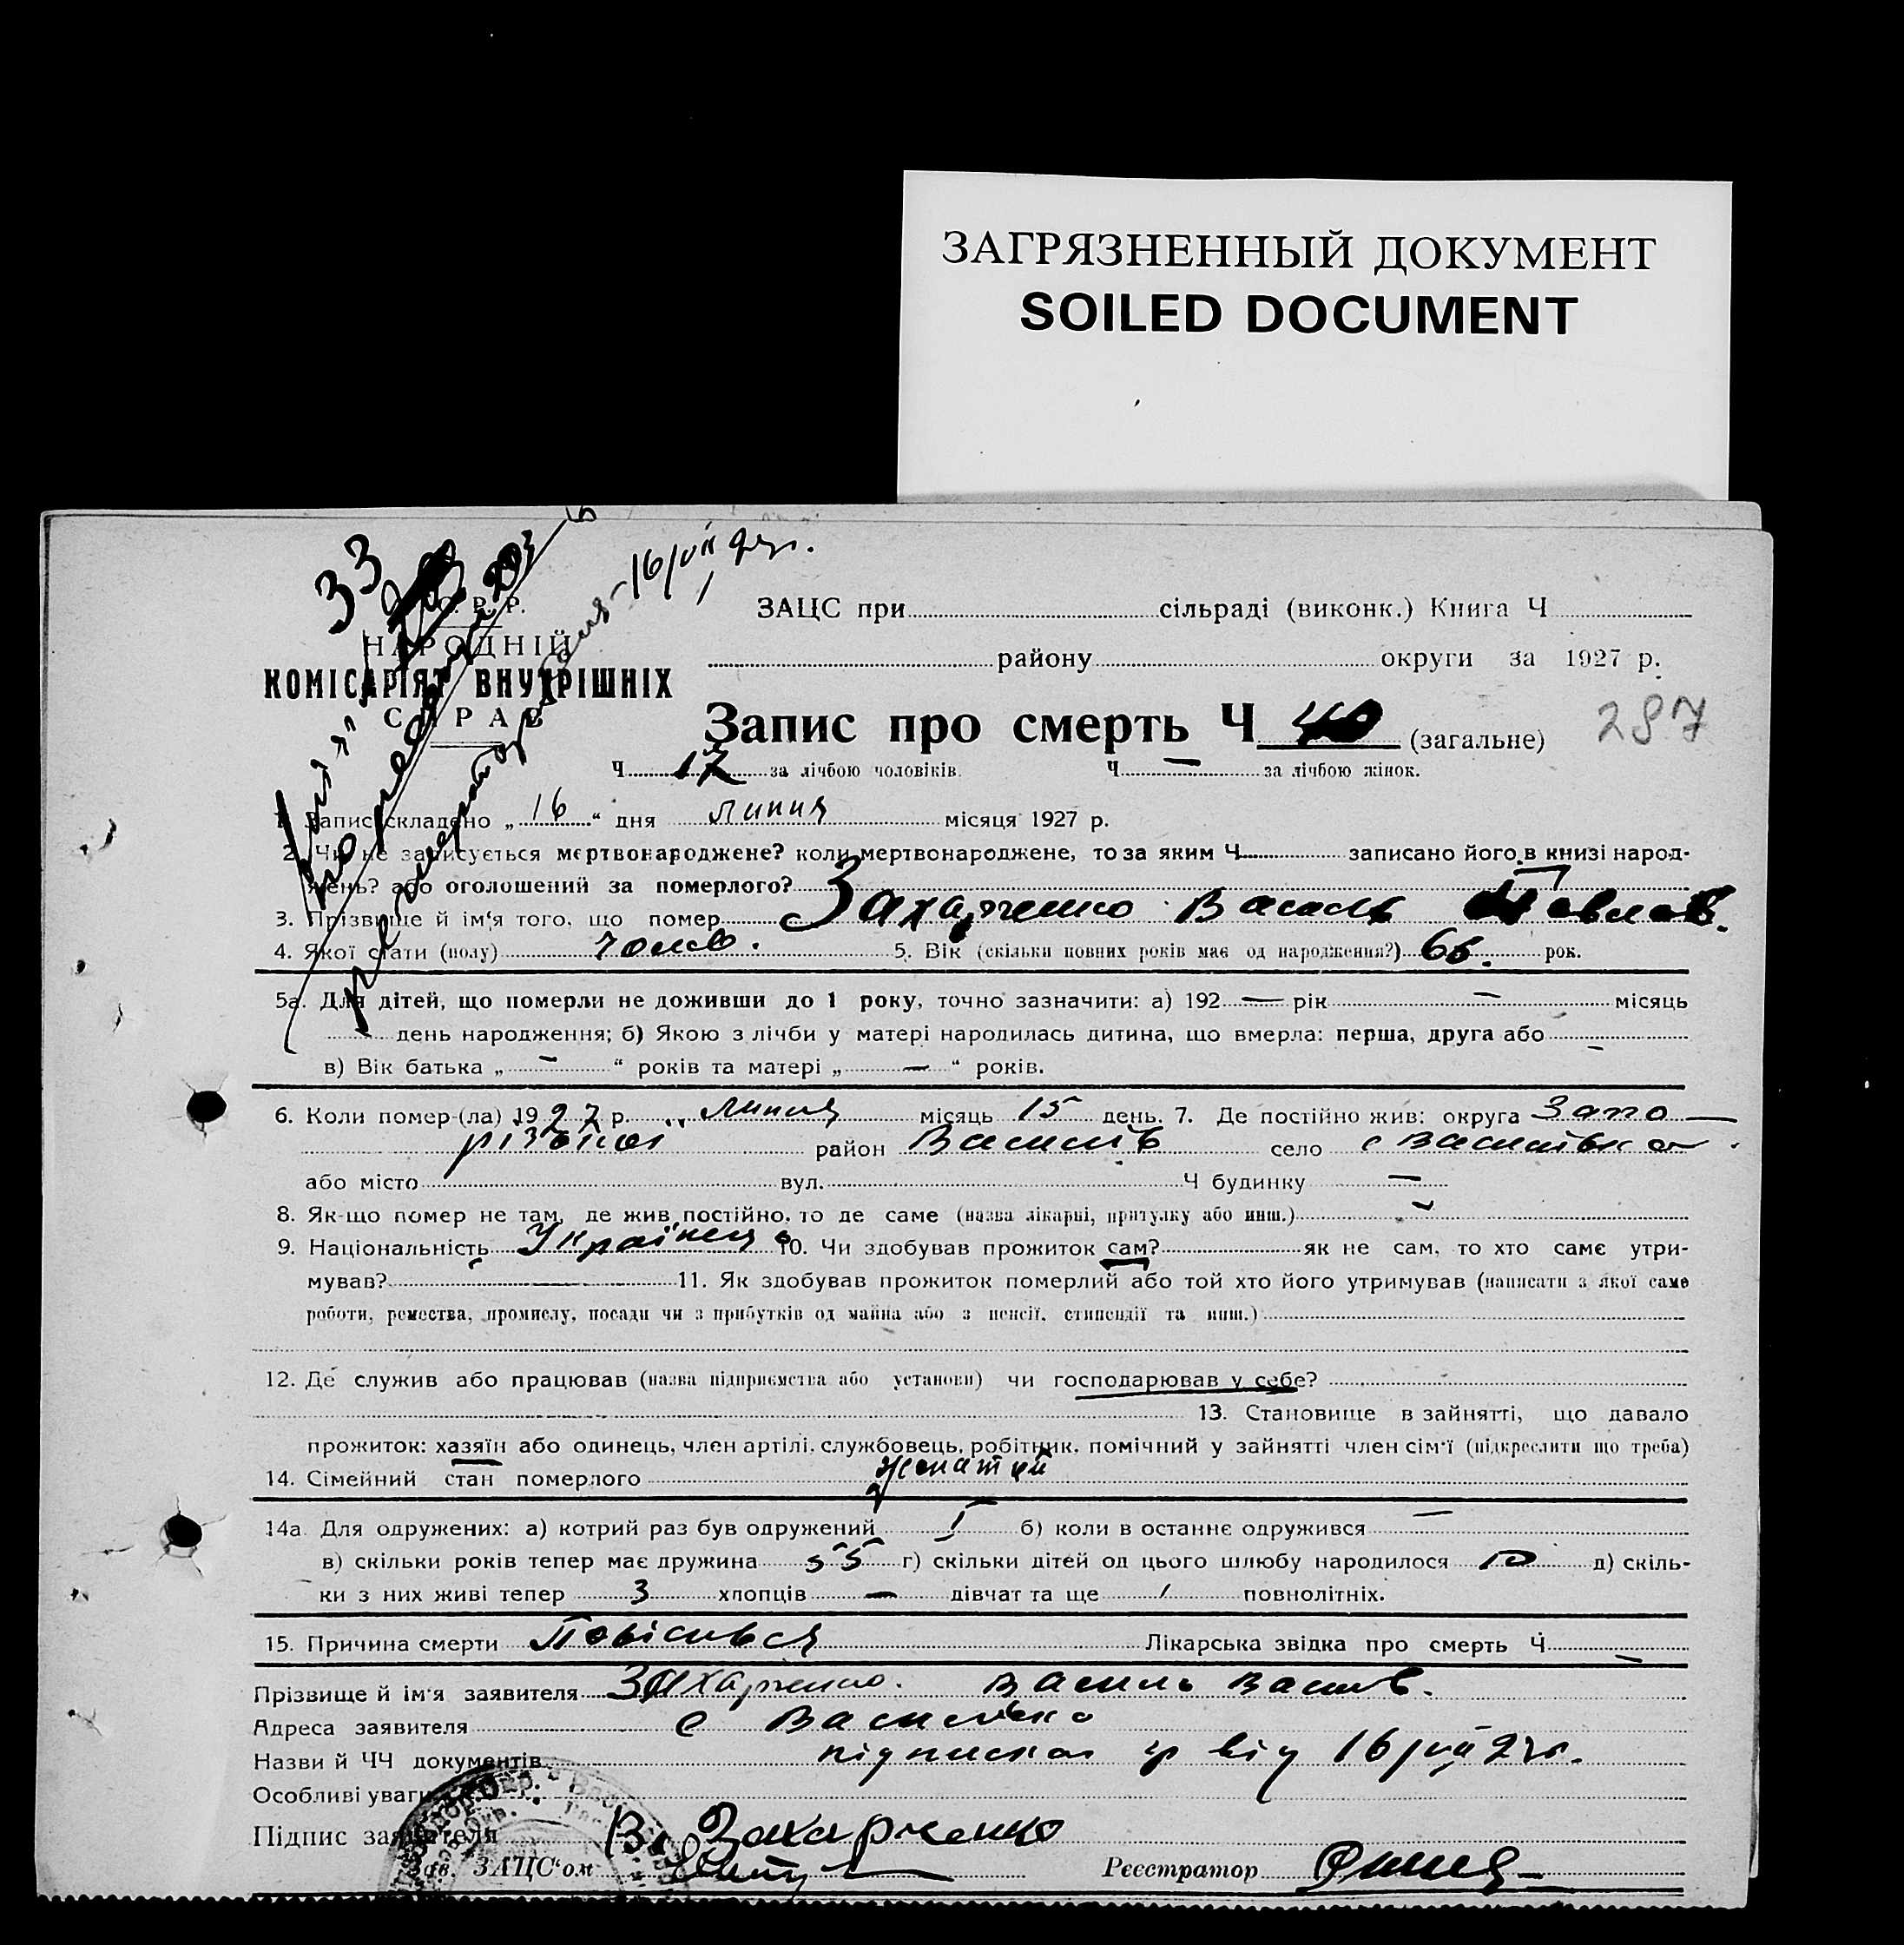 ЗАГРЯЗНЕННЫЙ ДОКУМЕНТ
SOILED DOCUMENT
33
16/VII 27р.
С. Р. Р.
НАРОДНІЙ
КОМІСАРІЯТ ВНУТРІШНІХ
СПРАВ
ЗАЦС при сільраді (виконк.) Книга Ч
району округи за 1927 р.
Запис про смерть Ч 40 (загальне) 287
Ч 17 за лічбою чоловіків. Ч — за лічбою жінок.
1. Запис складено „ 16 “ дня липня місяця 1927 р.
2. Чи не записується мертвонароджене? коли мертвонароджене, то за яким Ч записано його в книзі народ-
жень? або оголошений за померлого?
3. Прізвище й ім'я того, що помер Захарченко Василь Павлов.
4. Якої стати (полу) чолов. 5. Вік (скільки повних років має од народження?) 66. рок.
5а. Для дітей, що померли не доживши до 1 року, точно зазначити: а) 192 — рік — місяць
день народження; б) Якою з лічби у матері народилась дитина, що вмерла: перша, друга або —
в) Вік батька „ — “ років та матері „ — “ років.
6. Коли помер-(ла) 1927 р. липня місяць 15 день. 7. Де постійно жив: округа Запо—
різької район Василів село с Василівка.
або місто вул. Ч будинку —
8. Як-що помер не там, де жив постійно, то де саме (назва лікарні, притулку або инш.) —
9. Національність Українец 10. Чи здобував прожиток сам? як не сам, то хто саме утри-
мував? — 11. Як здобував прожиток померлий або той хто його утримував (написати з якої саме
роботи, ремества, промислу, посади чи з прибутків од майна або з пенсії, стипендії та инш.)
12. Де служив або працював (назва підприємства або установи) чи господарював у себе?
13. Становище в зайнятті, що давало
прожиток: хазяїн або одинець, член артілі, службовець, робітник, помічний у зайнятті член сім'ї (підкреслити що треба)
14. Сімейний стан померлого женатий
14а. Для одружених: а) котрий раз був одружений I б) коли в останнє одружився —
в) скільки років тепер має дружина 55 г) скільки дітей од цього шлюбу народилося 10 д) скіль-
ки з них живі тепер 3 хлопців — дівчат та ще 1 повнолітніх.
15. Причина смерти Повісився Лікарська звідка про смерть Ч —
Прізвище й ім'я заявителя Захарченко. Василь Васильв.
Адреса заявителя с Василівка
Назви й ЧЧ документів підписка від 16/VII 27р.
Особливі уваги
Підпис заявителя В. Захарченко
Зав. ЗАЦС'ом Реєстратор